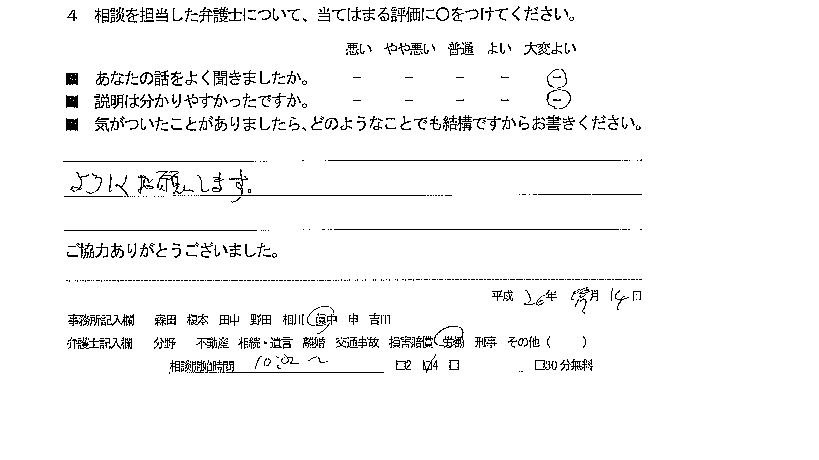 4 相談を担当した弁護士について、当てはまる評価に〇をつけてください。
悪い やや悪い 普通 よい 大変よい
■ あなたの話をよく聞きましたか。 − − − − −
■ 説明は分かりやすかったですか。 − − − − −
■ 気がついたことがありましたら、どのようなことでも結構ですからお書きください。
よろしくお願いします。
ご協力ありがとうございました。
平成 26年 月 14日
事務所記入欄 森田 榎本 田中 野田 相川 中 申 吉川
弁護士記入欄 分野 不動産 相続・遺言 離婚 交通事故 損害賠償 労働 刑事 その他( )
相談開始時間 10:02 〜 □2 □4 □ □30分無料